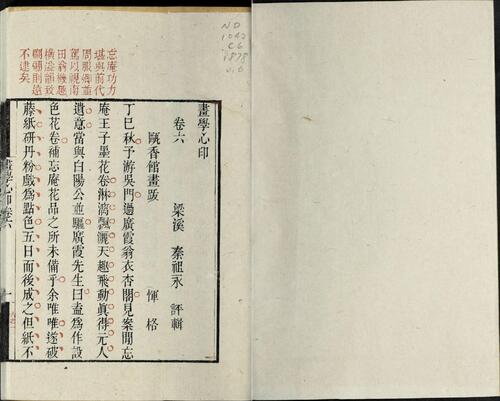 ND
1042
C6
1878
v.6
忘庵功力
堪與前代
周服卿並
駕以視南
田翁幾題
橫溢韻致
翩翩則遠
不逮矣
畫學心印
卷六
梁溪 秦祖永 評輯
甌香館畫跋 惲格
丁巳秋予游吳門過廣霞翁衣杏閣見案間忘
庵王子墨花卷淋漓飄灑天趣飛動真得元人
遺意當與白陽公並驅廣霞先生曰盍為作設
色花卷補忘庵花品之所未備乎余唯唯遂破
藤紙研丹粉戲為點色五日而後成之但紙不
畫學心印卷六
一